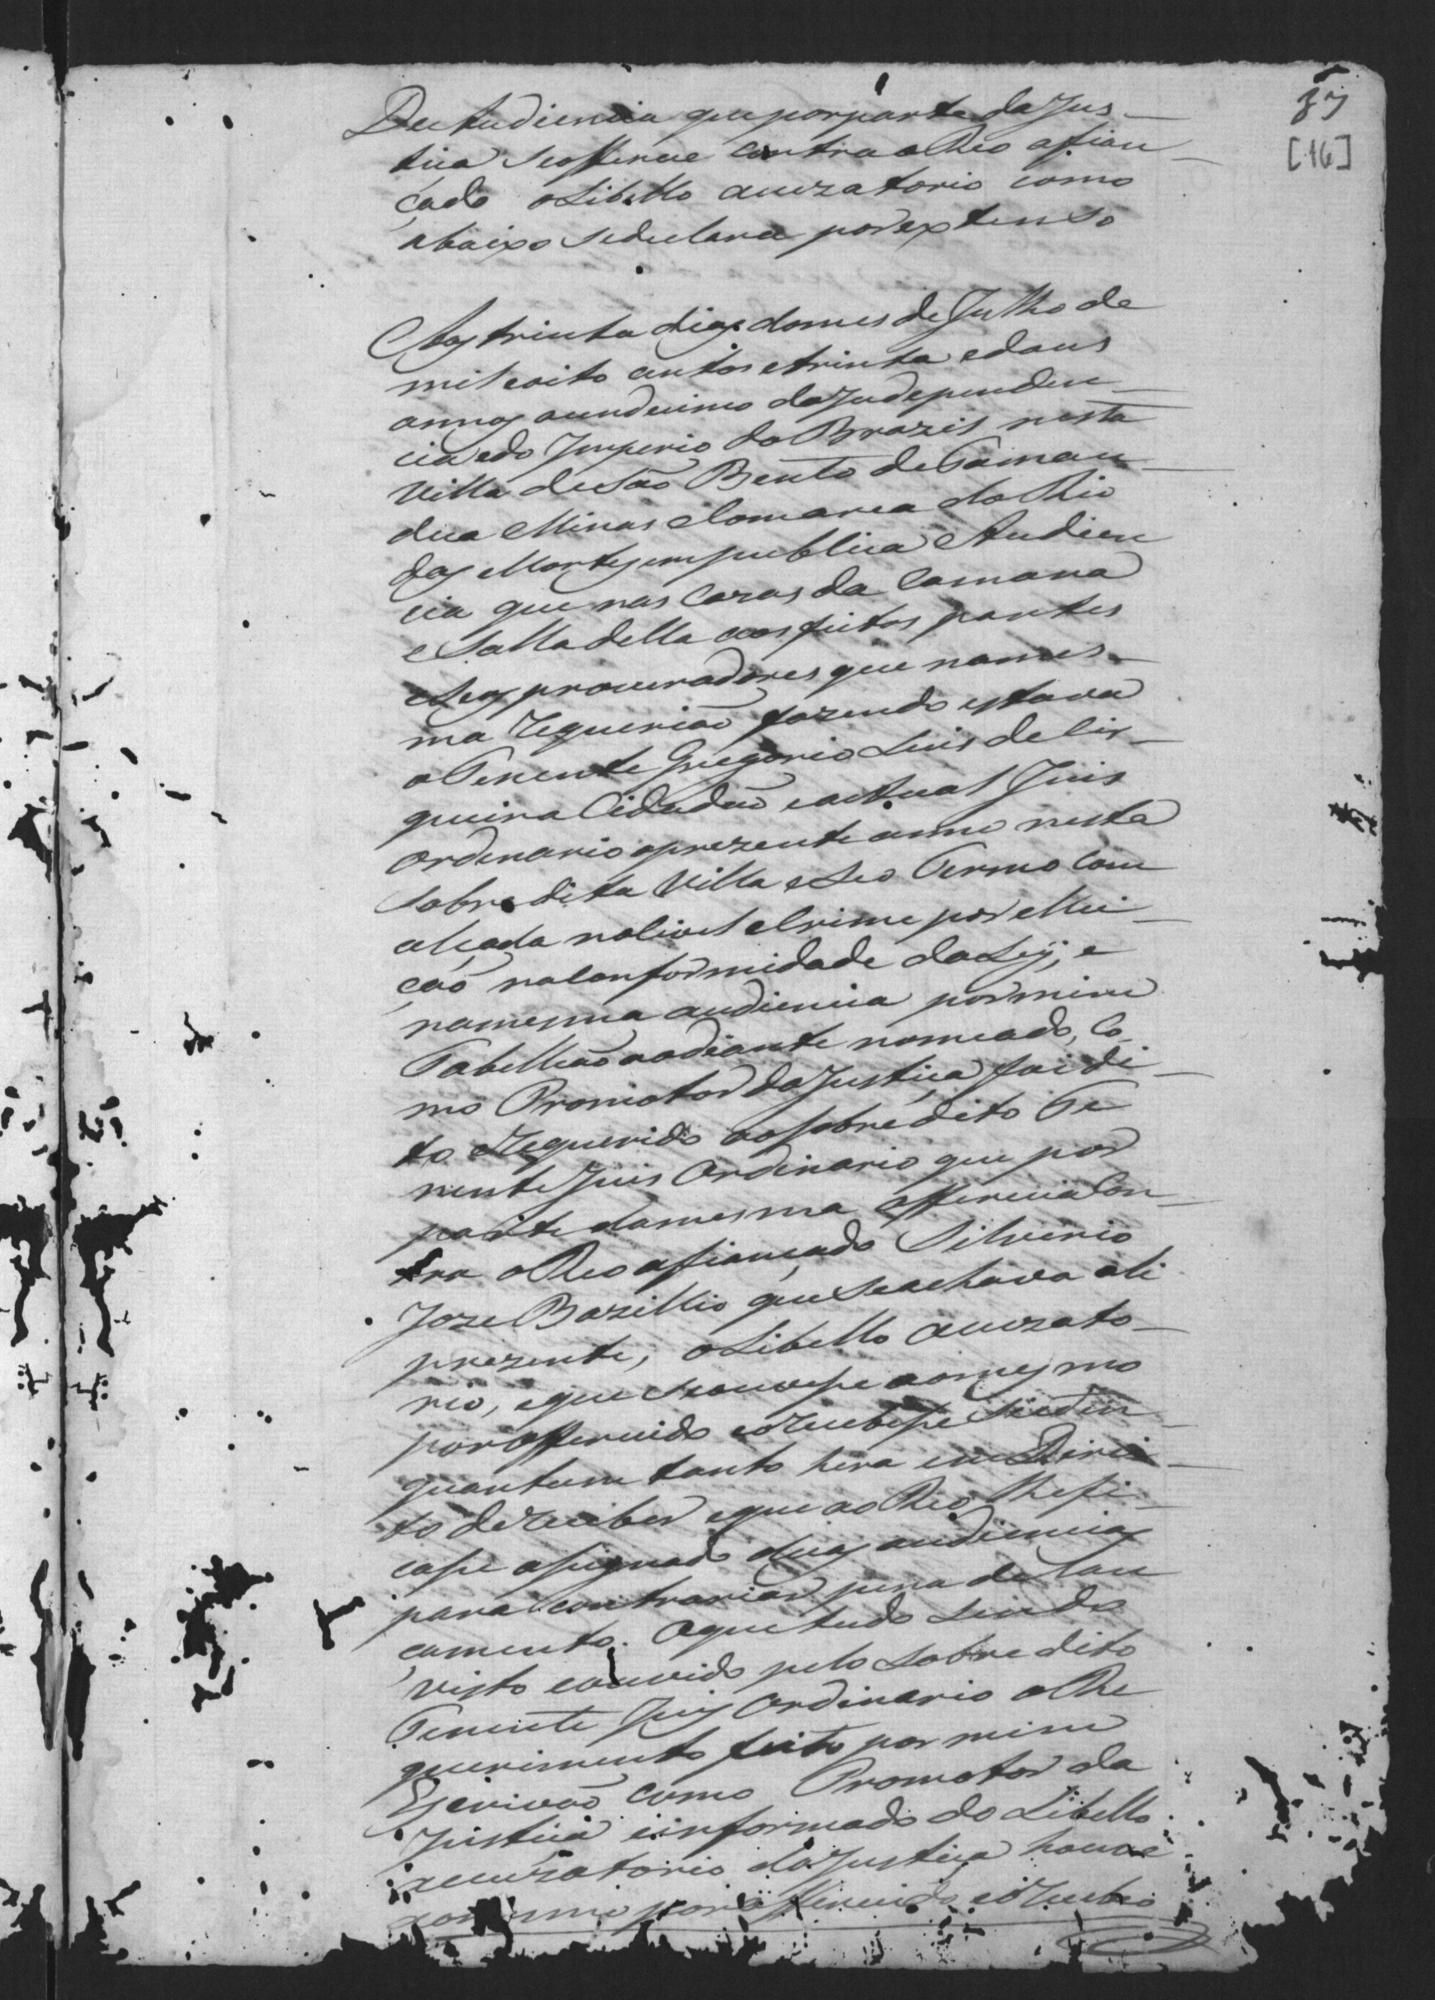 37
[16]
De Audiencia que por parte da Jus-
tiça se offerece contra o Reo afian-
çado o Libello acuzatorio como
abaixo se declara por extenso
Aos trinta dias do mes de Julho de
mil e oito centos e trinta e dous
annos undecimo da Independen-
cia e do Imperio do Brazil nesta
Villa de São Bento de Taman-
dua Minas e Comarca do Rio
das Mortes em publica Audien
cia que nas Cazas da Camara
e Salla della aos feitos partes
e seus procuradores que na mes-
ma requerião fazendo estava
o Tenente Gregorio Luis de Cir-
queira Cidadão e actual Juis
Ordinario o prezente anno nesta
sobredita Villa e seo Termo com
alçada no Civel e Crime por Elei-
ção na Conformidade da Ley, e
na mesma audiencia por mim
Tabellião ao diante nomeado, Co-
mo Promotor da Justiça foi di-
to e requerido ao sobredito Te
nente Juis Ordinario que por
parte da mesma offerecia Con-
tra o Reo afiançado Silverio
Joze Bazillio que se achava ali
prezente, o Libello acuzato-
rio, e que se ouvesse ao mesmo
por offerecido e o recebesse si et in
quantum tanto hera em Direi-
to de receber e que ao Reo lhe fi-
casse assignado duas audiencias
para contrariar pena de Lan
çamento. O que tudo sendo
visto e ouvido pelo sobredito
Tenente Juis Ordinario o Re
querimento feito por mim
Escrivão como Promotor da
Justiça e informado do Libello
acuzatorio da Justiça houve
ao mesmo por offerecido e o recebeo